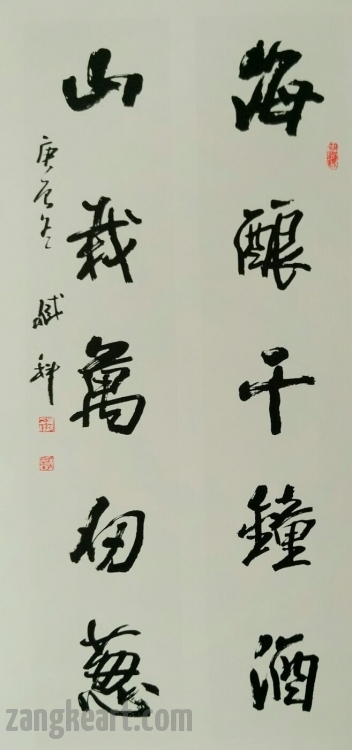 海酿千鐘酒
山栽萬仞葱
庚寅冬 臧科
zangkeart.com